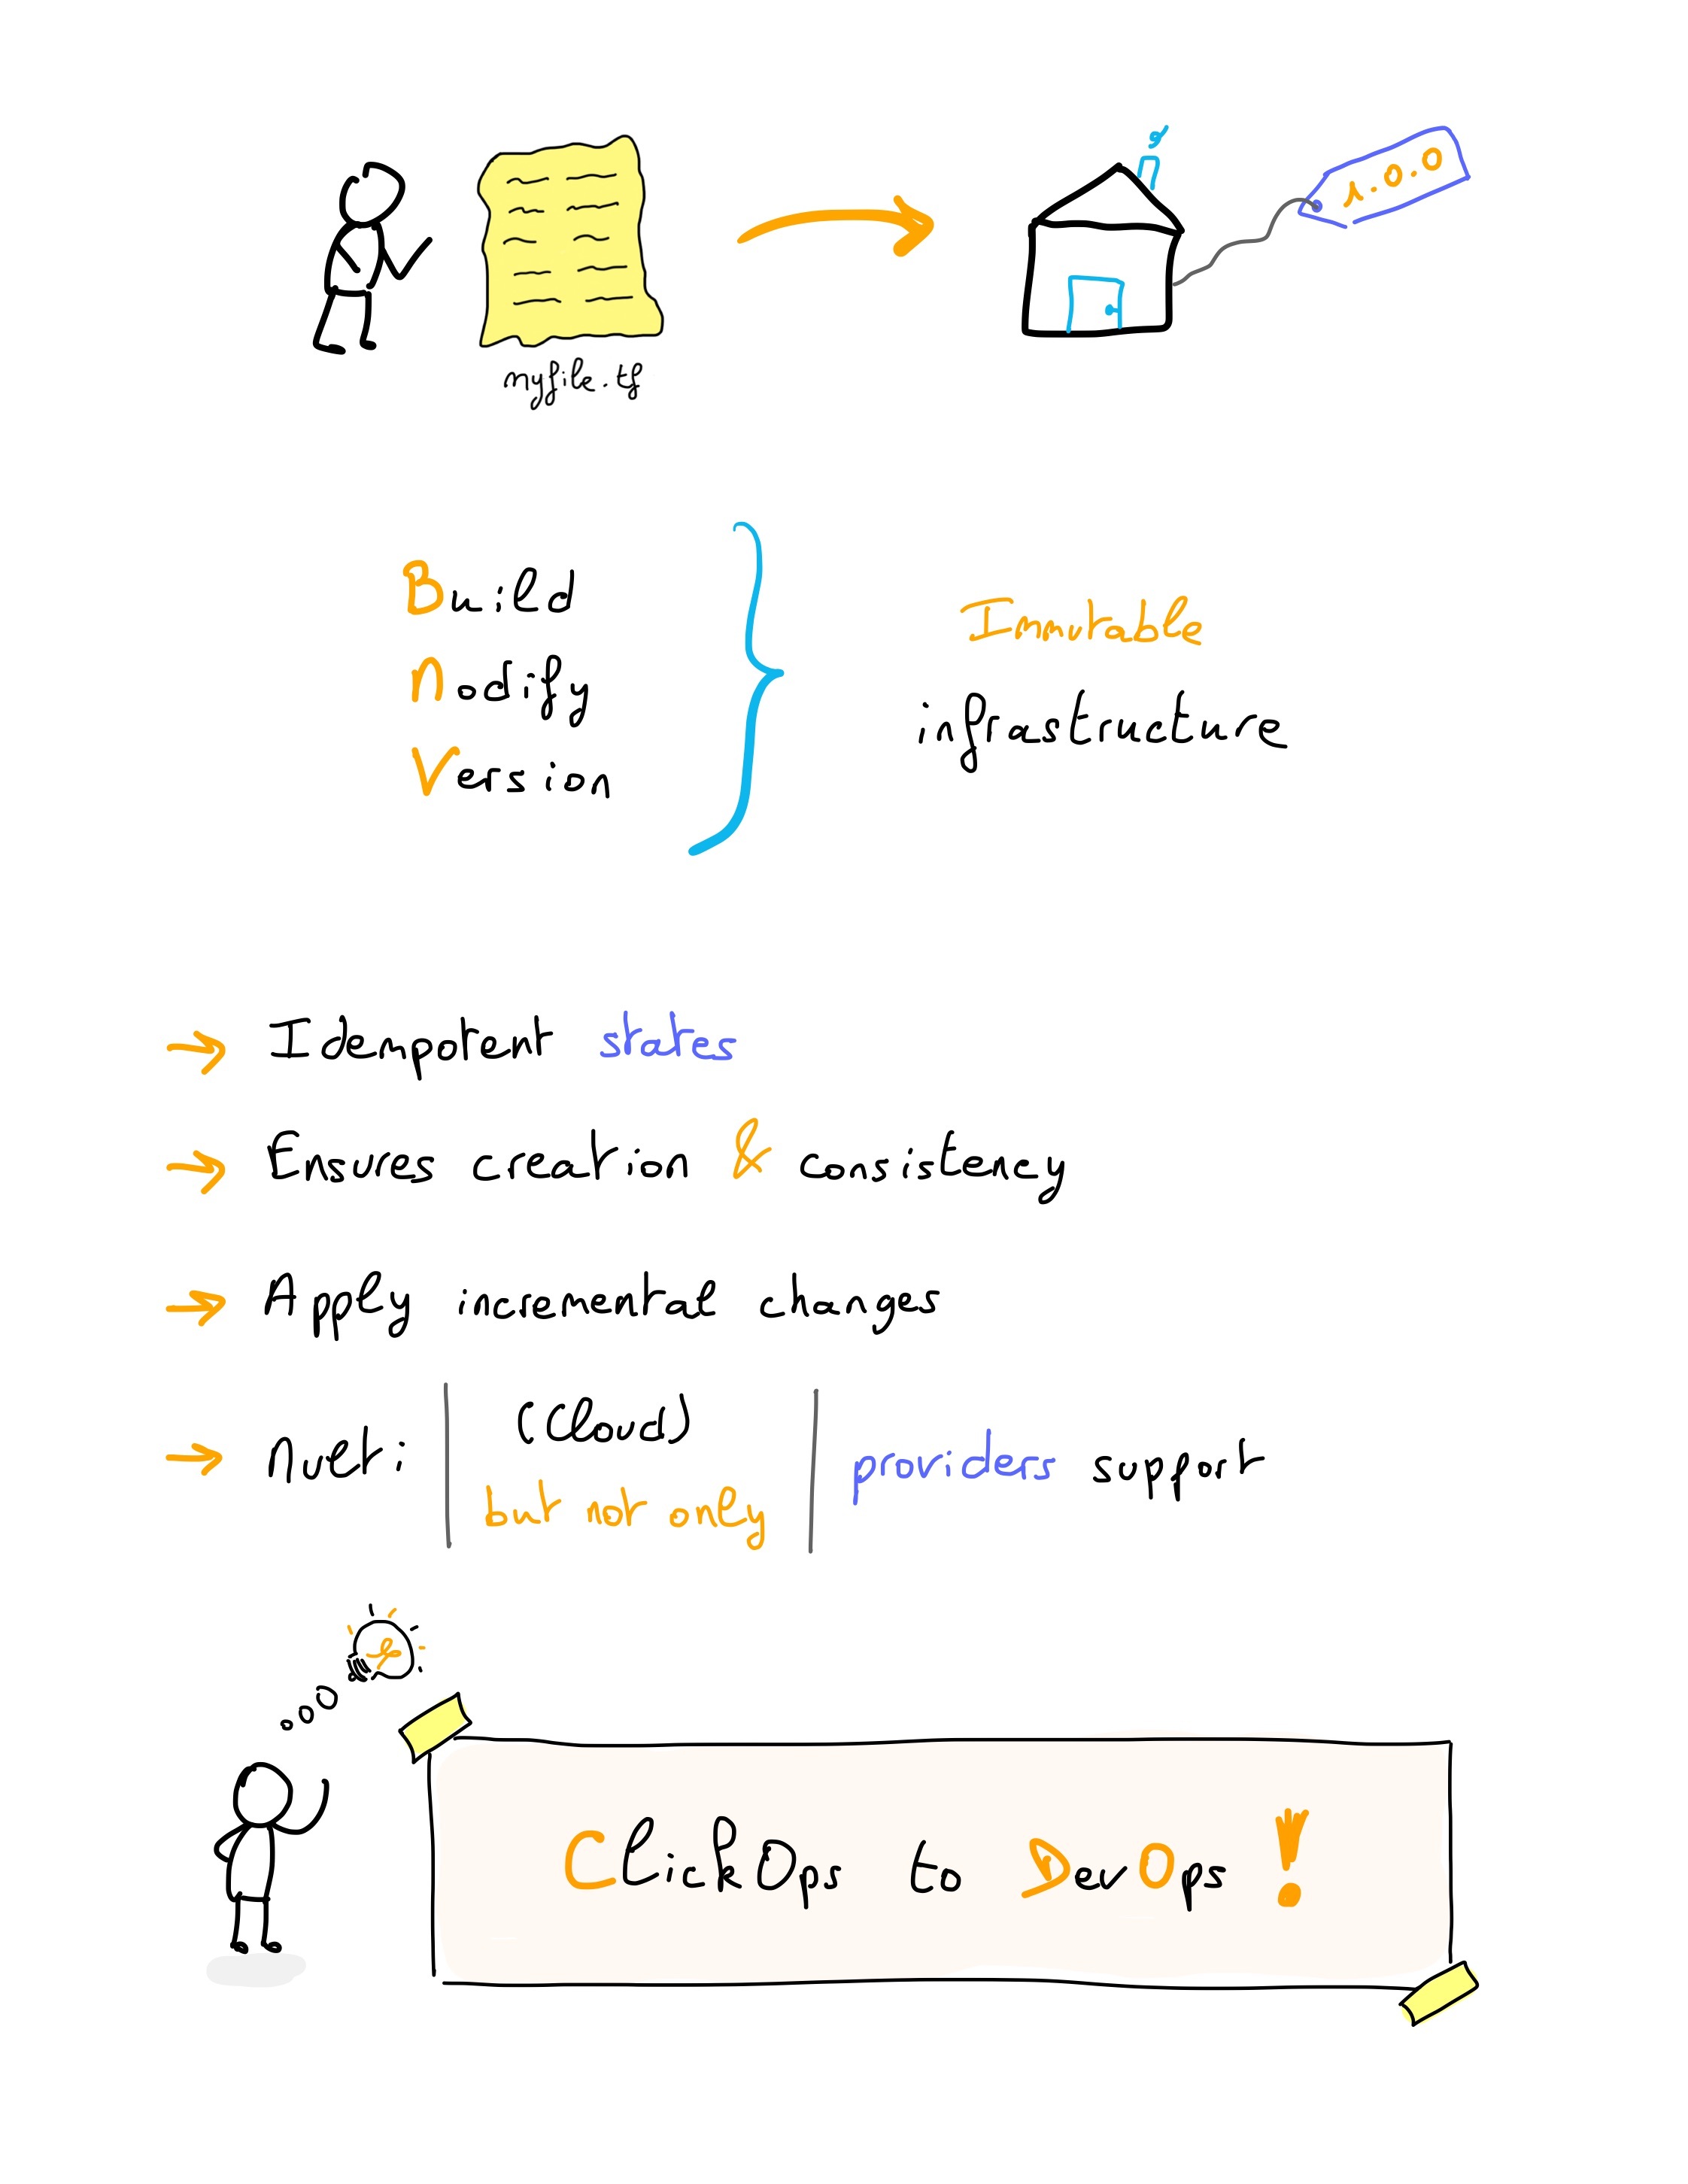 myfile.tf
1.0.0
Build
Modify
Version
Immutable
infrastructure
→ Idempotent states
→ Ensures creation & consistency
→ Apply incremental changes
→ Multi | (Cloud) but not only | providers support
ClickOps to DevOps !